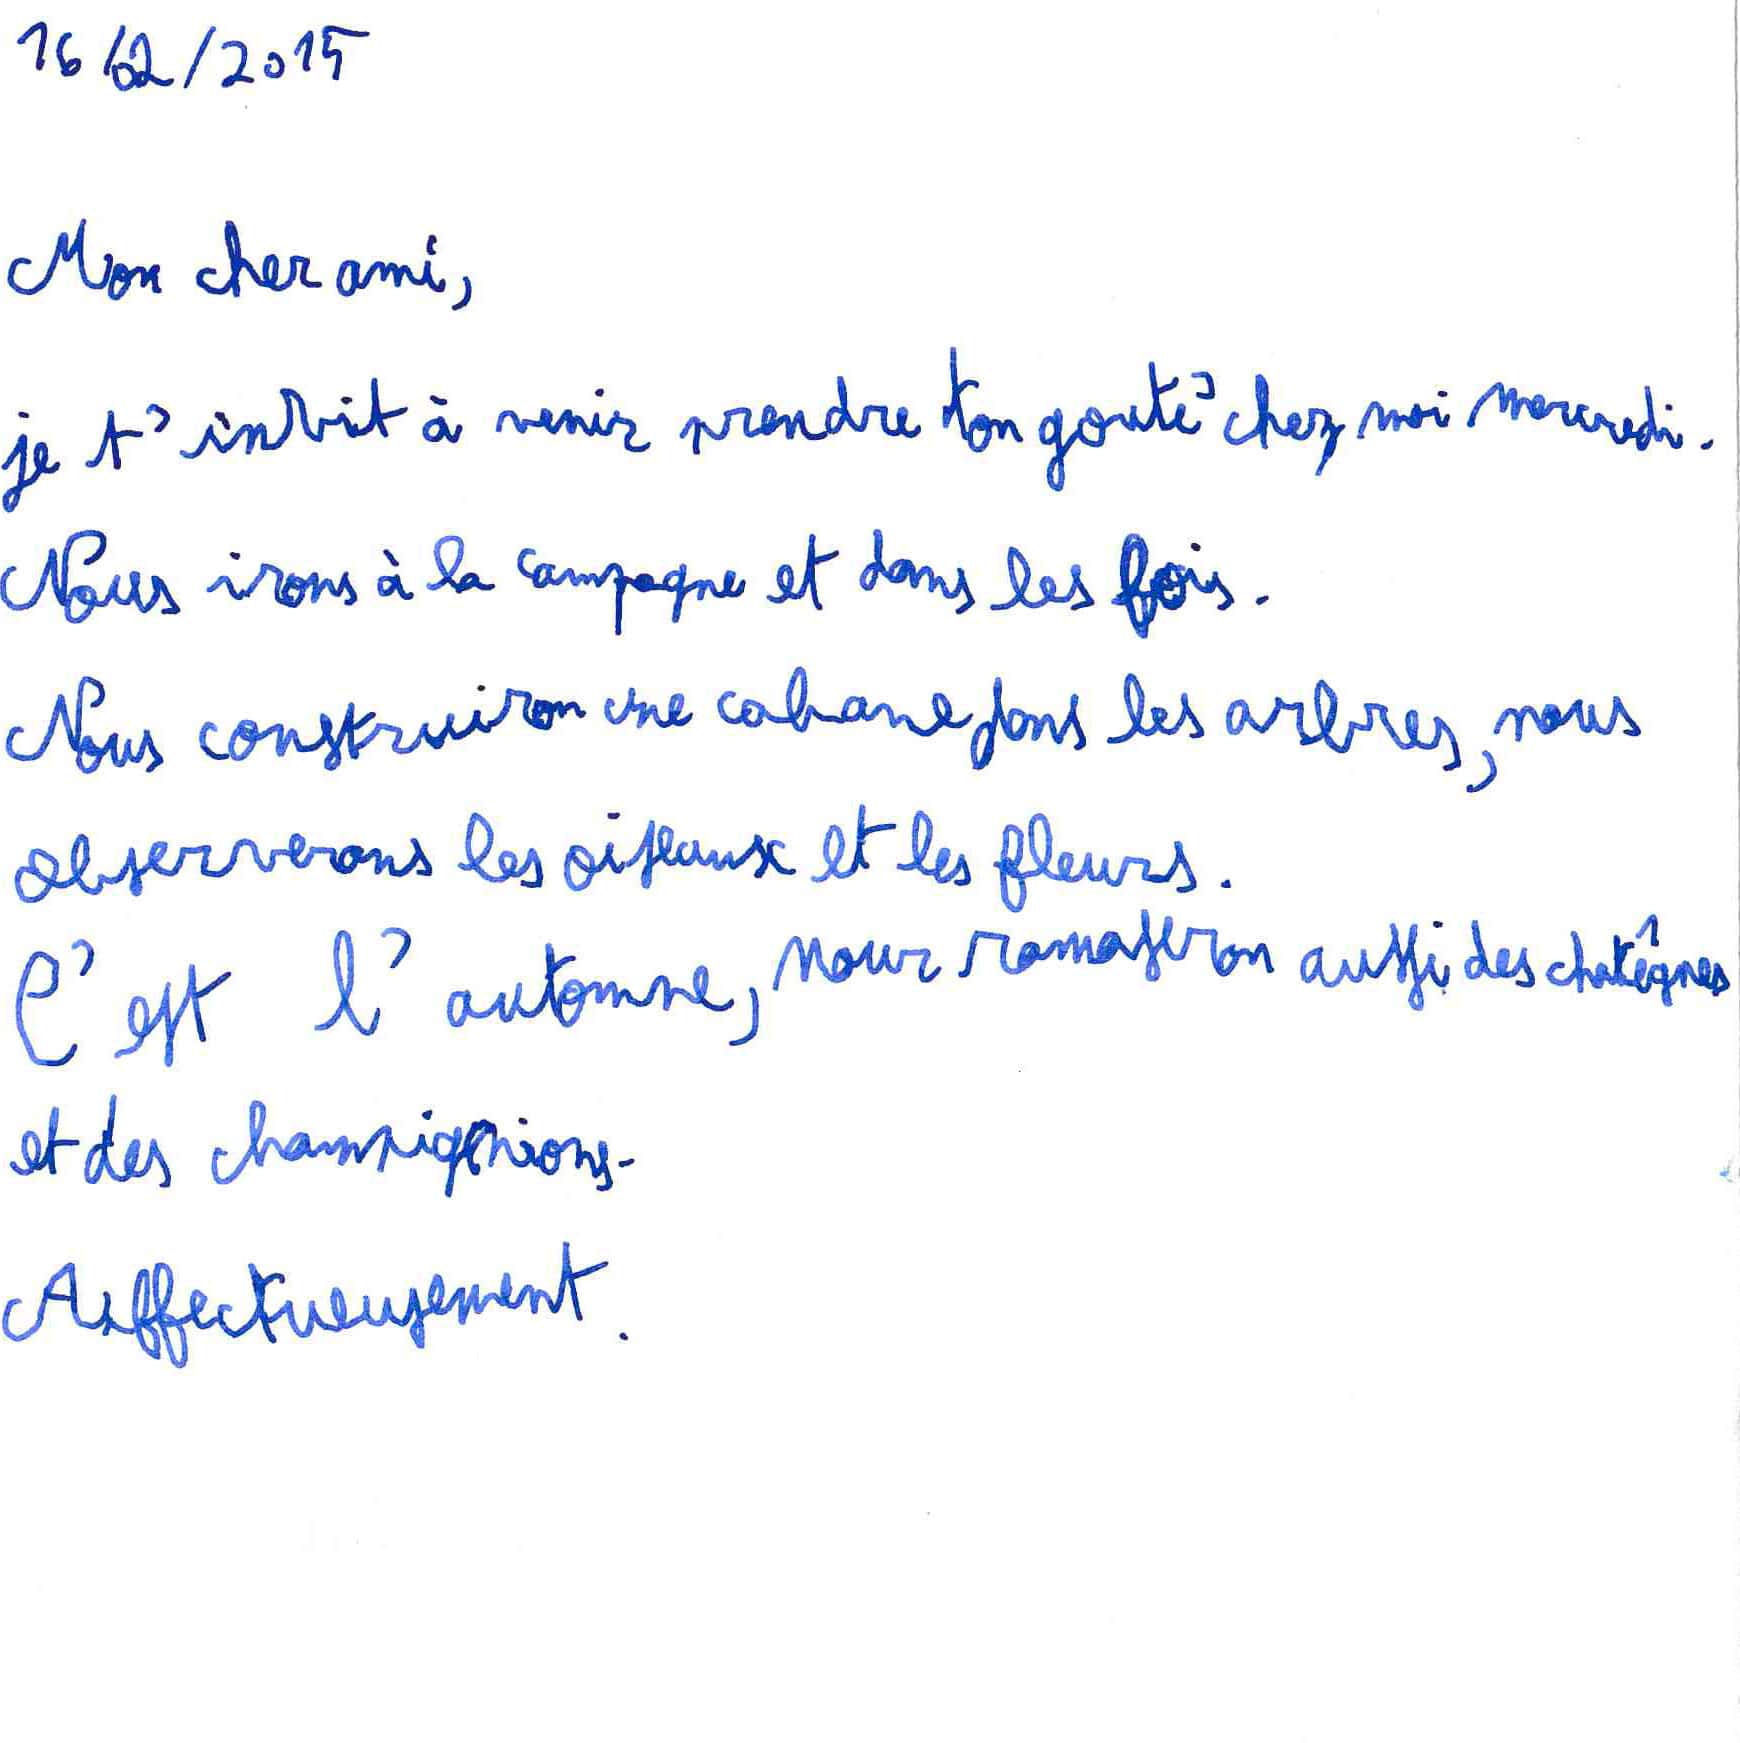 16/02/2015
Mon cher ami,
je t'invit à venir prendre ton gouté chez moi mercredi.
Nous irons à la campagne et dans les bois.
Nous construiron une cabane dans les arbres, nous
observerons les oiseaux et les fleurs.
C'est l'automne, nous ramaseron aussi des chatêgnes
et des champignions.
Affectueusement.